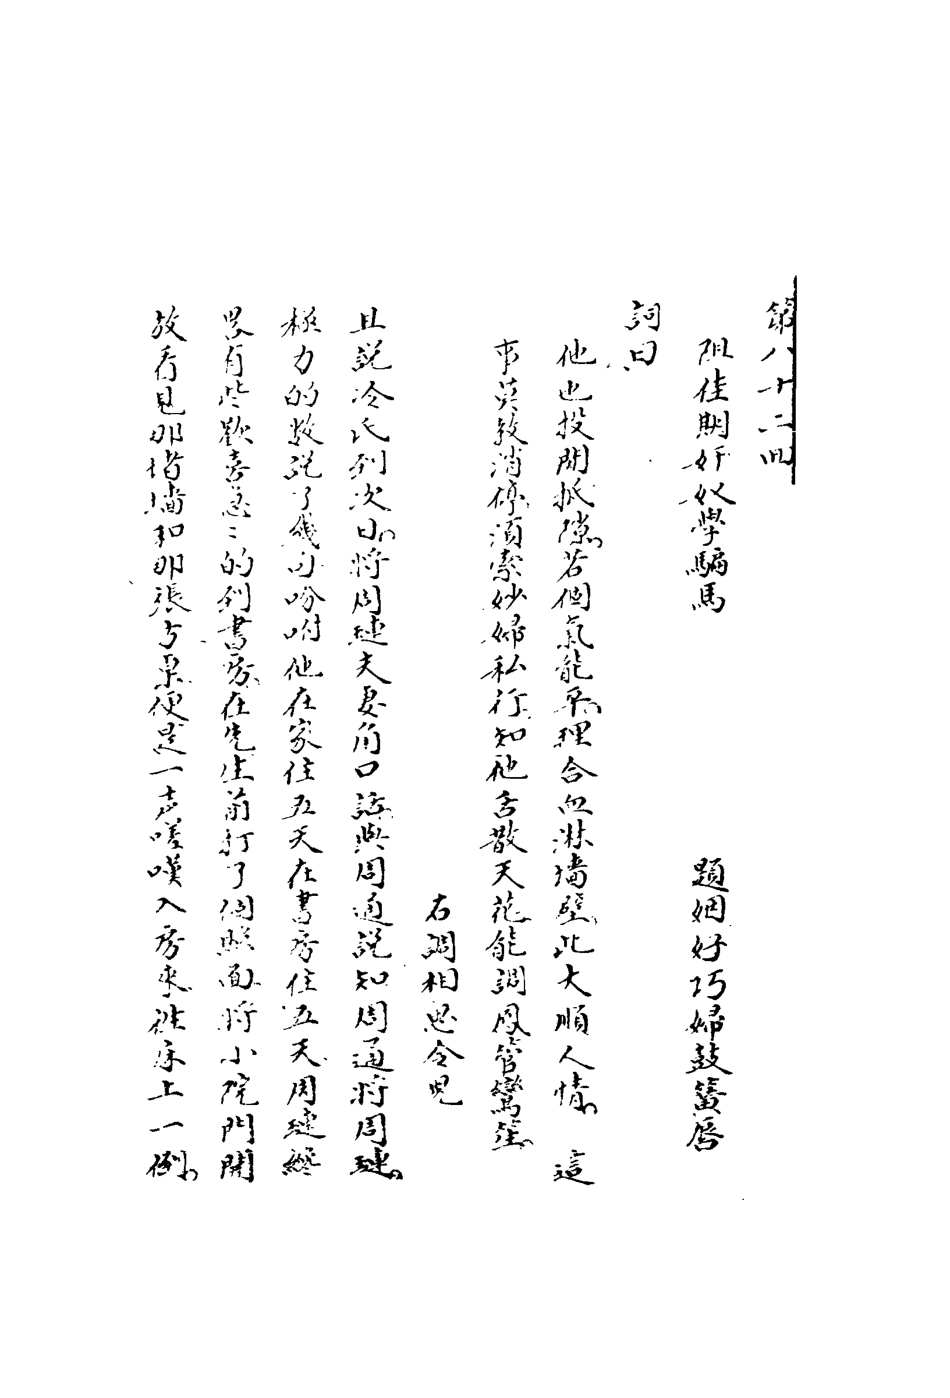 第八十二回
阻佳期奸奴學騙馬　題姻好巧婦鼓簧唇
詞曰
他也投閒抵隙若個氣能平理合血淋墻壁此大順人情　這
事莫教消停須索妙婦私行知他舌散天花能調鳳管鸞笙
右調相思令兒
且說冷氏到次日將周璉夫妻角口話與周通說知周通將周璉
極力的教說了幾句吩咐他在家住五天在書房住五天周璉纔
畧有些歡喜急〻的到書房在先生前打了個照面將小院門開
放看見那堵墻和那張方桌便是一声嗟嘆入房來徃床上一倒